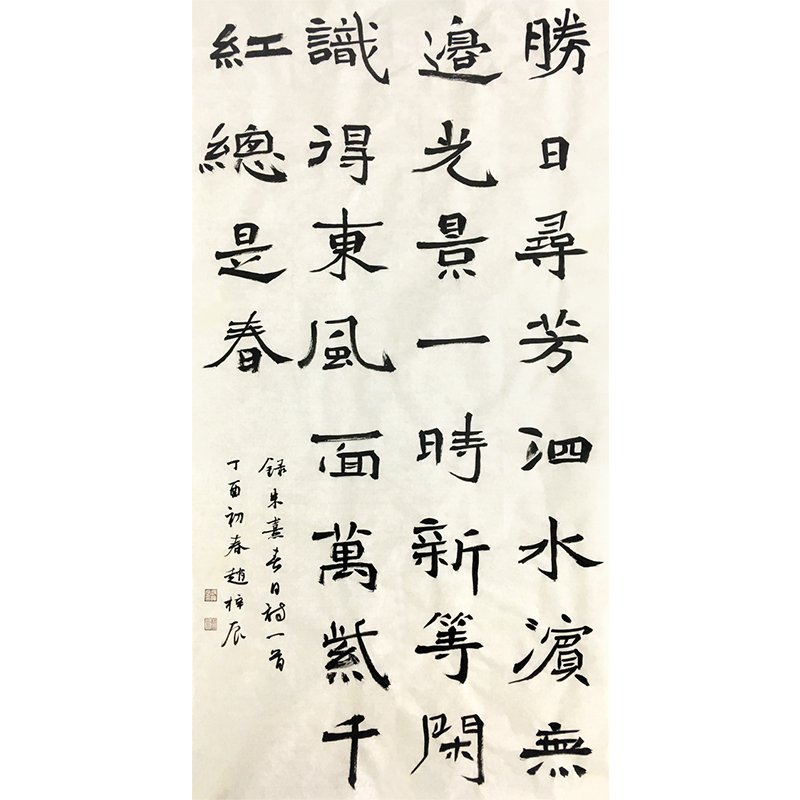 勝日尋芳泗水濱無
邊光景一時新等閑
識得東風面萬紫千
紅總是春
錄朱熹春日詩一首
丁酉初春趙梓辰